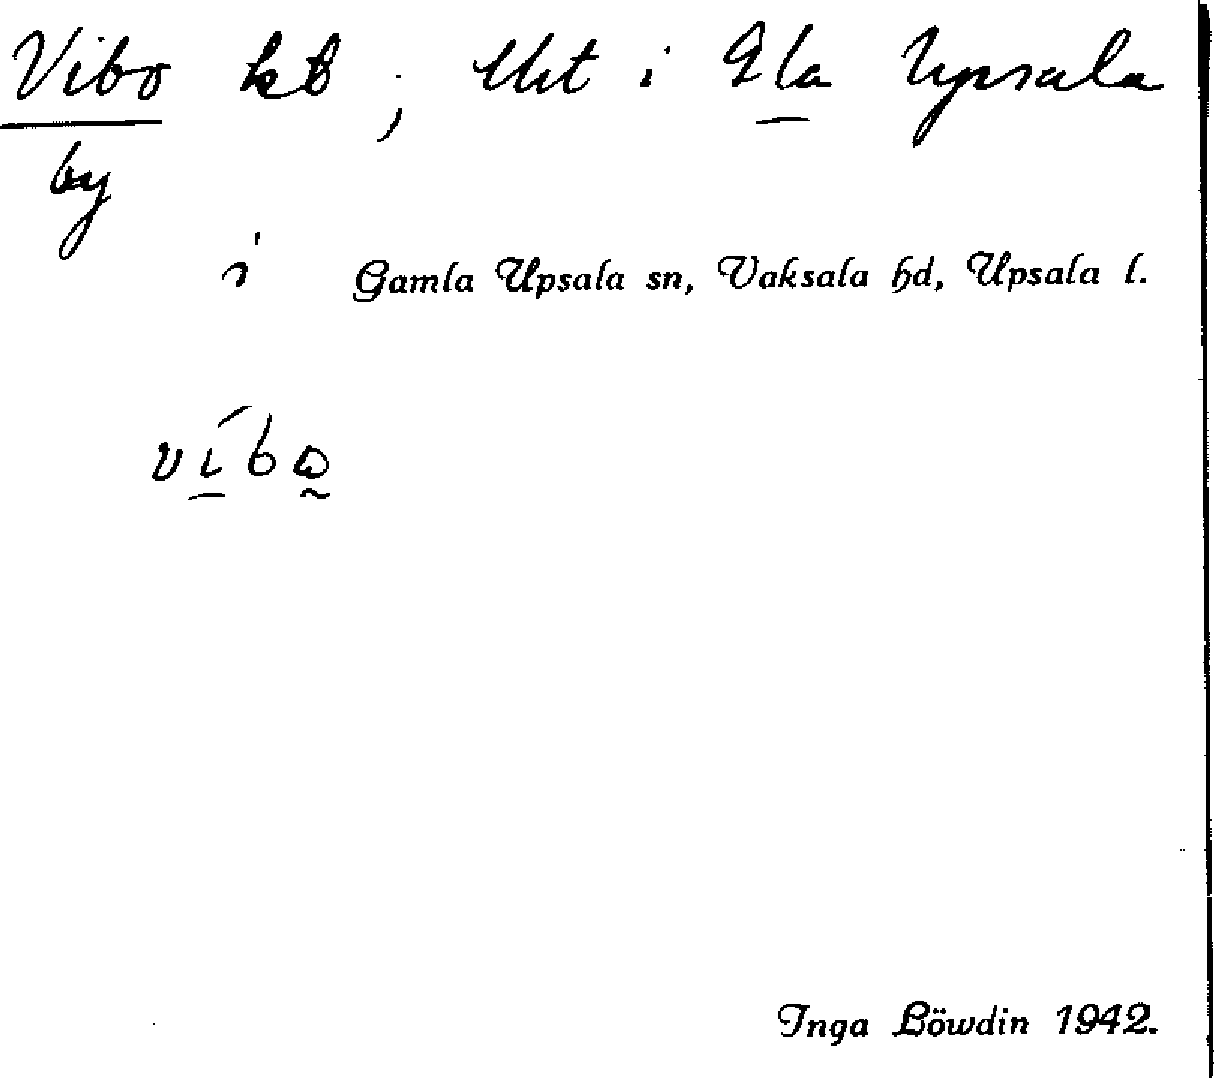 Vibo kB; Utkt i Gla Upsala
by
i Gamla Upsala sn, Vaksala hd, Upsala l.
víbɷ
Inga Löwdin 1942.